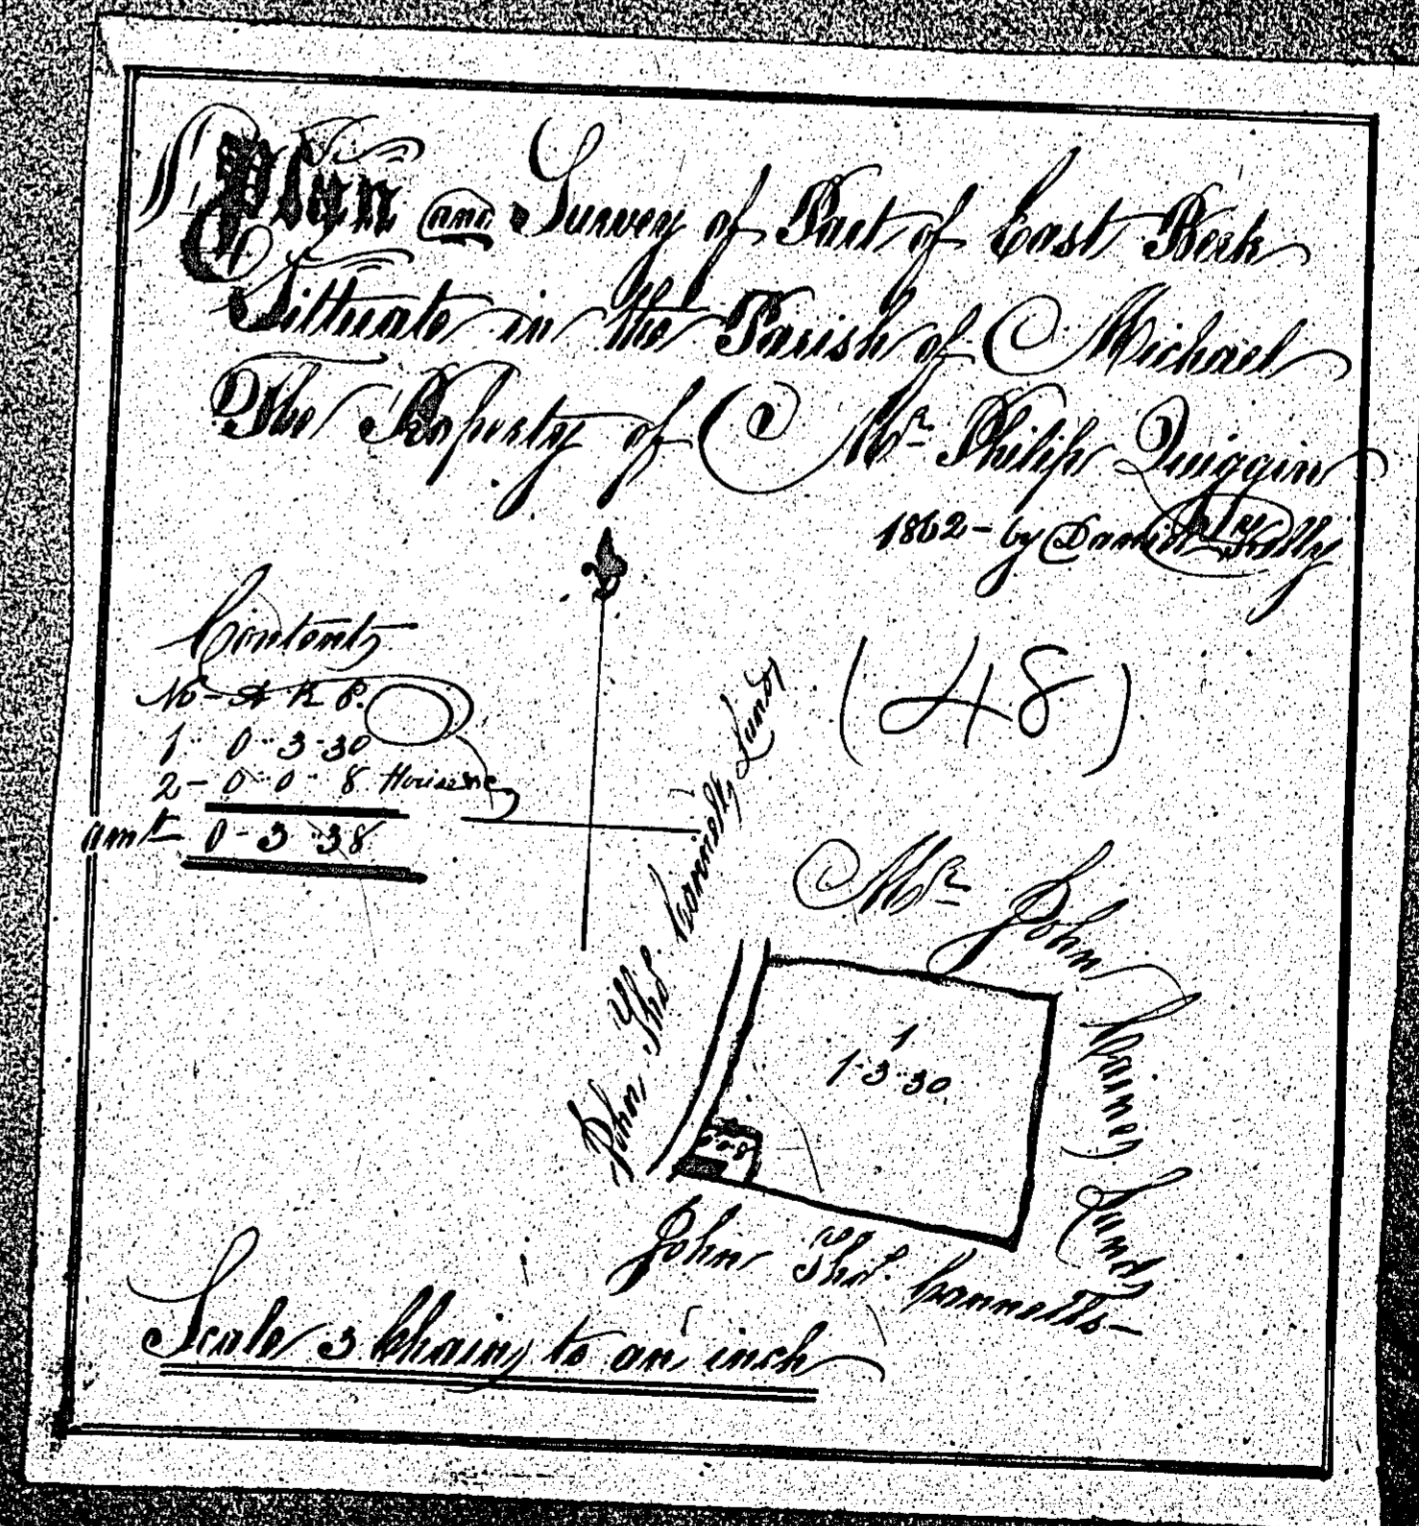 Plan and Survey of Part of East Berk
Sittuate in the Parish of Michael
The Property of Mr Philip Quiggin
1862 - by Daniel Kelly
(48)
Contents
No - A R P.
1 .. 0 .. 3 - 30
2 - 0 .. 0 .. 8 House &c
amt 0 - 3 .. 38
John Thos. Cannells Lands
Mr John Cainer Lands
1
1 .. 3 .. 30
0 .. 0 .. 8
John Thos. Cannells -
Scale 3 Chains to an inch